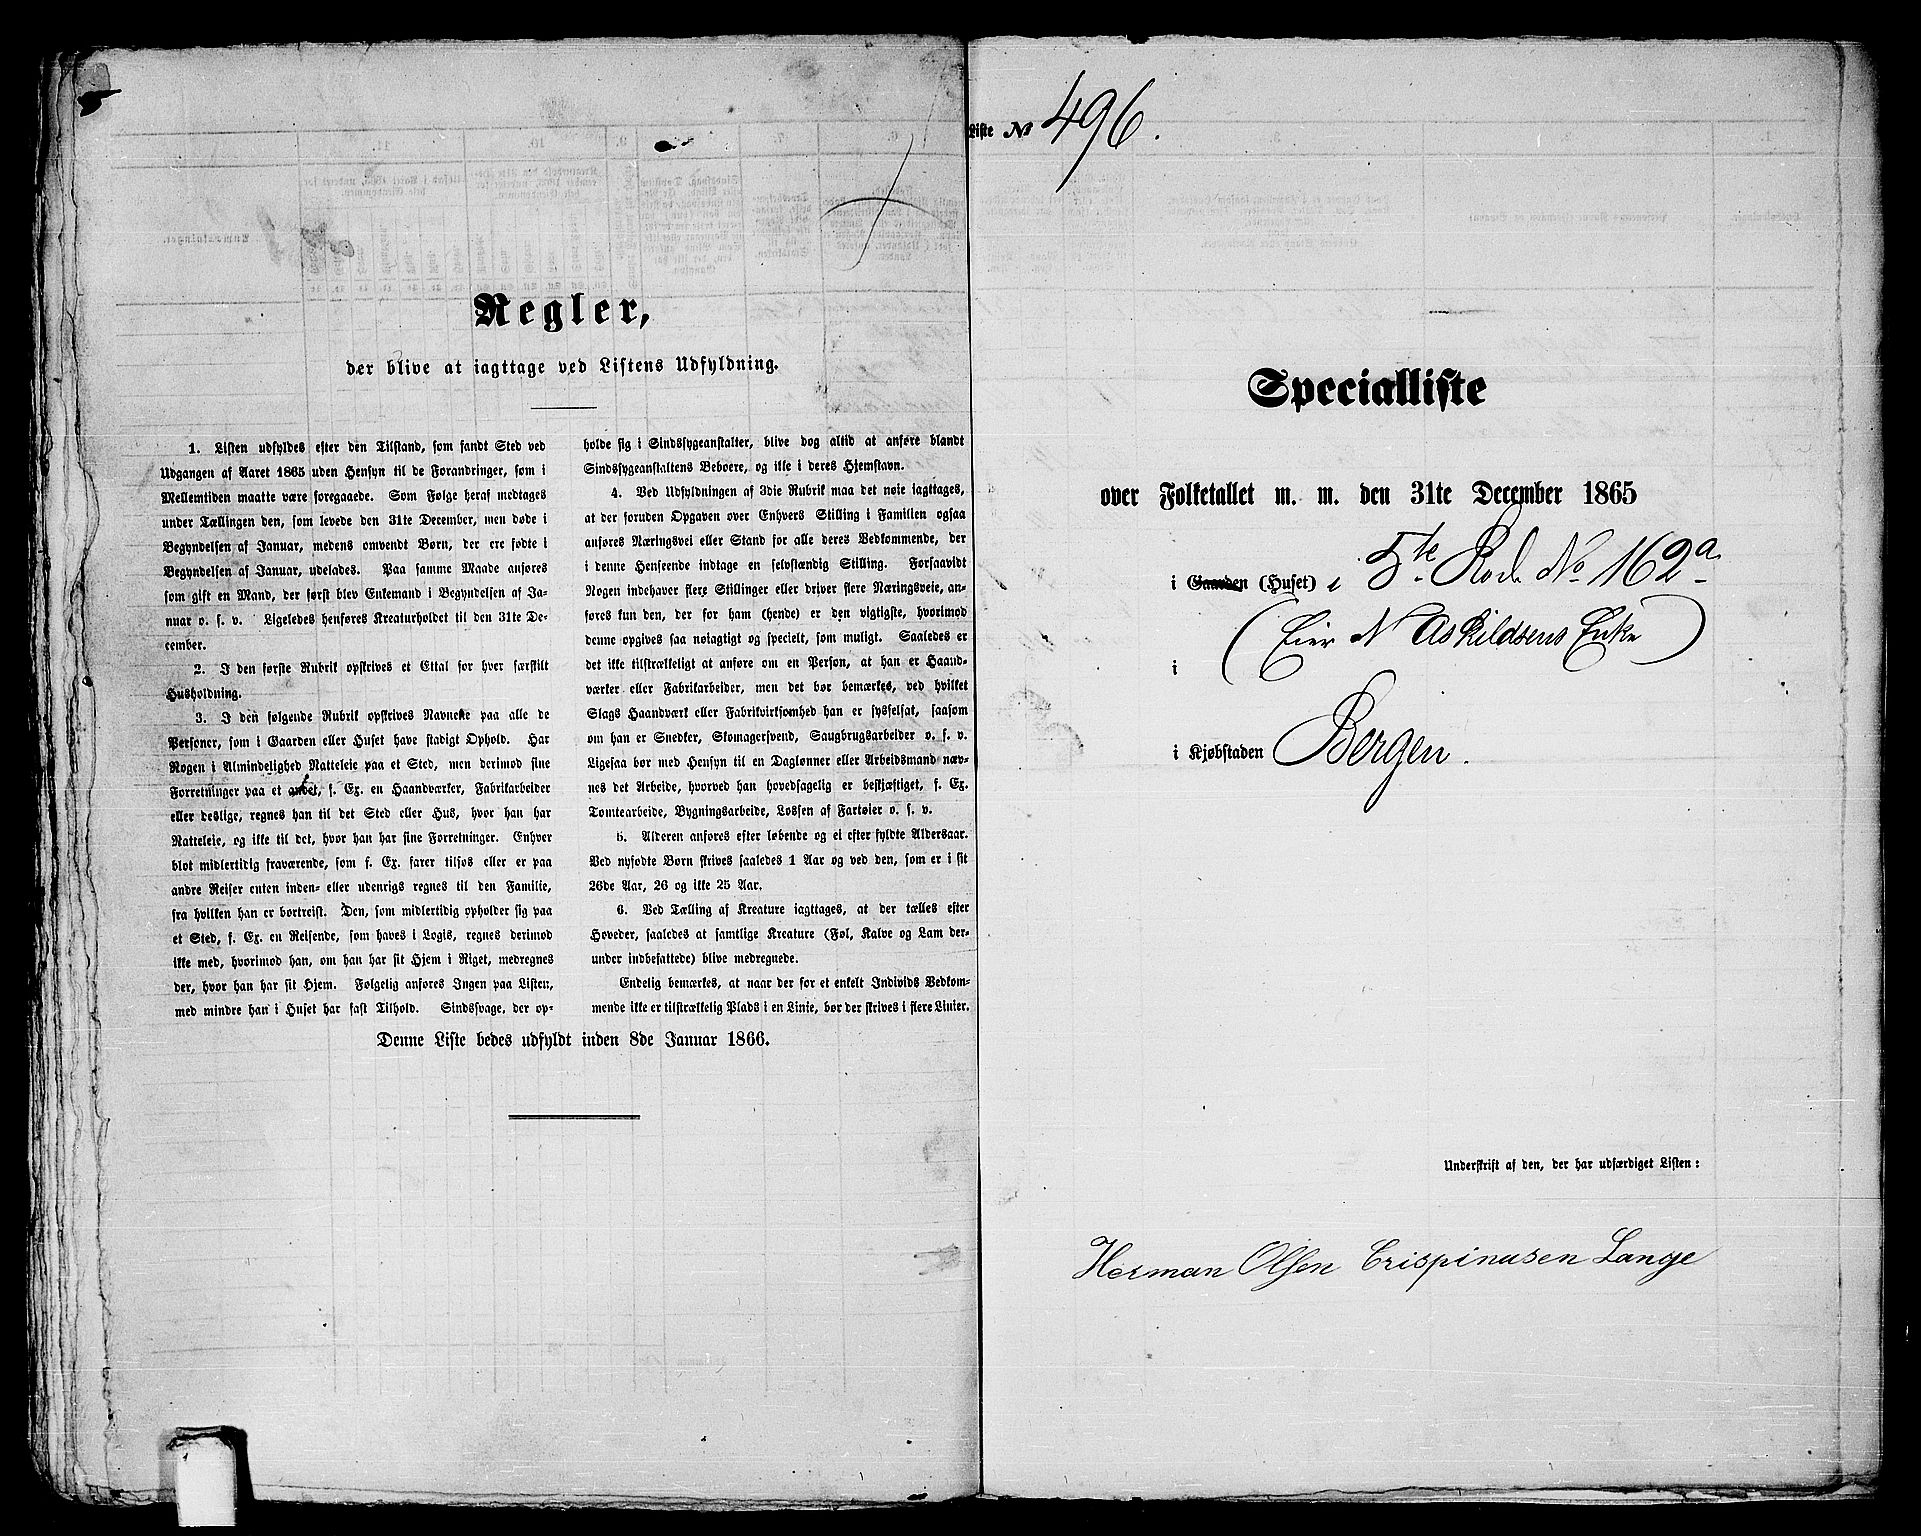 Regler,
der blive at iagttage ved Listens Udfyldning.
1. Listen udfyldes efter den Tilstand, som fandt Sted ved
Udgangen af Aaret 1865 uden Hensyn til de Forandringer, som i
Mellemtiden maatte være foregaaede. Som Følge heraf medtages
under Tællingen den, som levede den 31te December, men døde i
Begyndelsen af Januar, medens omvendt Børn, der ere fødte i
Begyndelsen af Januar, udelades. Paa samme Maade anføres
som gift en Mand, der først blev Enkemand i Begyndelsen af Ja-
nuar o. s. v. Ligeledes henføres Kreaturholdet til den 31te De-
cember.
2. I den første Rubrik opskrives et Ettal for hver særskilt
Husholdning.
3. I den følgende Rubrik opskrives Navnene paa alle de
Personer, som i Gaarden eller Huset have stadigt Ophold. Har
Nogen i Almindelighed Natteleie paa et Sted, men derimod sine
Forretninger paa et andet, f. Ex. en Haandværker, Fabrikarbeider
eller deslige, regnes han til det Sted eller Hus, hvor han har
Natteleie, og ikke til det, hvor han har sine Forretninger. Enhver
blot midlertidig fraværende, som f. Ex. farer tilsøs eller er paa
andre Reiser enten inden- eller udenrigs regnes til den Familie,
fra hvilken han er bortreist. Den, som midlertidig opholder sig paa
et Sted, f. Ex. en Reisende, som haves i Logis, regnes derimod
ikke med, hvorimod han, om han har sit Hjem i Riget, medregnes
der, hvor han har sit Hjem. Følgelig anføres Ingen paa Listen,
med mindre han i Huset har fast Tilhold. Sindssvage, der op-
holde sig i Sindssygeanstalter, blive dog altid at anføre blandt
Sindssygeanstaltens Beboere, og ikke i deres Hjemstavn.
4. Ved Udfyldningen af 3die Rubrik maa det nøie iagttages,
at der foruden Opgaven over Enhvers Stilling i Familien ogsaa
anføres Næringsvei eller Stand for alle deres Vedkommende, der
i denne Henseende indtage en selvstændig Stilling. Forsaavidt
Nogen indehaver flere Stillinger eller driver flere Næringsveie, an-
føres kun den, der for ham (hende) er den vigtigste, hvorimod
denne opgives saa nøiagtigt og specielt, som muligt. Saaledes er
det ikke tilstrækkeligt at anføre om en Person, at han er Haand-
værker eller Fabrikarbeider, men det bør bemærkes, ved hvilket
Slags Haandværk eller Fabrikvirksomhed han er sysselsat, saasom
om han er Snedker, Skomagersvend, Saugbrugsarbeider o. s. v.
Ligesaa bør med Hensyn til en Daglønner eller Arbeidsmand næv-
nes det Arbeide, hvorved han hovedsagelig er beskjæftiget, f. Ex.
Tomtearbeide, Bygningsarbeide, Lossen af Fartøier o. s. v.
5. Alderen anføres efter løbende og ei efter fyldte Aldersaar.
Ved nyfødte Børn skrives saaledes 1 Aar og ved den, som er i sit
26de Aar, 26 og ikke 25 Aar.
6. Ved Tælling af Kreature iagttages, at der tælles efter
Hoveder, saaledes at samtlige Kreature (Føl, Kalve og Lam der-
under indbefattede) blive medregnede.
Endelig bemærkes, at naar der for et enkelt Individs Vedkom-
mende ikke er tilstrækkelig Plads i en Linie, bør der skrives i flere Linier.
Denne Liste bedes udfyldt inden 8de Januar 1866.
Liste № 496.
Specialliste
over Folketallet m. m. den 31te December 1865
i Gaarden (Huset) i 5te Rode No 162a
(Eier N Askildsens Enke)
i
i Kjøbstaden Bergen.
Underskrift af den, der har udfærdiget Listen:
Herman Olsen Crispinusen Lange